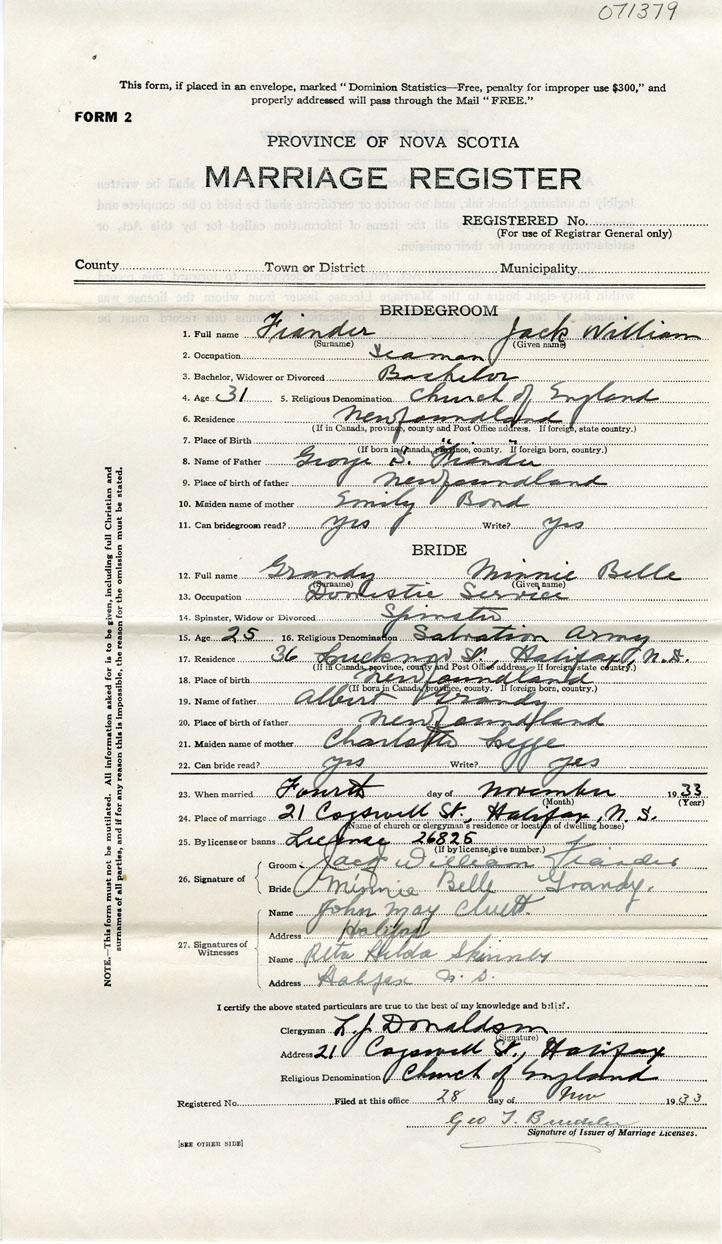 071379
This form, if placed in an envelope, marked "Dominion Statistics—Free, penalty for improper use $300," and
properly addressed will pass through the Mail "FREE."
FORM 2
PROVINCE OF NOVA SCOTIA
MARRIAGE REGISTER
REGISTERED No.
(For use of Registrar General only)
County Town or District Municipality
BRIDEGROOM
1. Full name Fiander Jack William
(Surname) (Given name)
2. Occupation Seaman
3. Bachelor, Widower or Divorced Bachelor
4. Age 31 5. Religious Denomination Church of England
6. Residence Newfoundland
(If in Canada, province, county and Post Office address. If foreign, state country.)
7. Place of Birth " "
(If born in Canada, province, county. If foreign born, country.)
8. Name of Father George S. Fiander
9. Place of birth of father Newfoundland
10. Maiden name of mother Emily Bond
11. Can bridegroom read? yes Write? yes
BRIDE
12. Full name Grandy Minnie Belle
(Surname) (Given name)
13. Occupation Domestic Service
14. Spinster, Widow or Divorced Spinster
15. Age 25 16. Religious Denomination Salvation Army
17. Residence 36 Lucknow St., Halifax, N.S.
(If in Canada, province, county and Post Office address. If foreign state country.)
18. Place of birth Newfoundland
(If born in Canada, province, county. If foreign born, country.)
19. Name of father Albert Grandy
20. Place of birth of father Newfoundland
21. Maiden name of mother Charlotte Legge
22. Can bride read? yes Write? yes
23. When married Fourth day of November 1933
(Month) (Year)
24. Place of marriage 21 Cogswell St., Halifax, N.S.
(Name of church or clergyman's residence or location of dwelling house)
25. By license or banns License 26825
(If by license, give number.)
26. Signature of
Groom Jack William Fiander
Bride Minnie Belle Grandy.
27. Signatures of Witnesses
Name John May Cluett
Address Halifax
Name Reta Hilda Skinner
Address Halifax N.S.
I certify the above stated particulars are true to the best of my knowledge and belief.
Clergyman L.J. Donaldson
(Signature)
Address 21 Cogswell St., Halifax
Religious Denomination Church of England
Registered No. Filed at this office 28 day of Nov 1933
Geo T.
Signature of Issuer of Marriage Licenses.
[SEE OTHER SIDE]
NOTE.—This form must not be mutilated. All information asked for is to be given, including full Christian and
surnames of all parties, and if for any reason this is impossible, the reason for the omission must be stated.